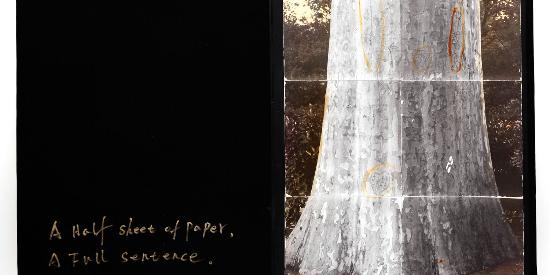 A Half sheet of paper,
A Full sentence.